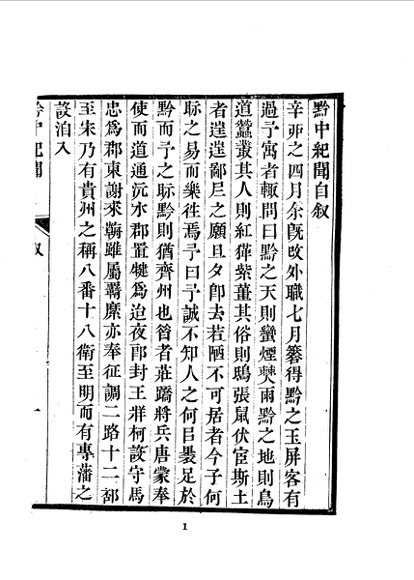 黔中紀聞自叙
辛卯之四月余旣改外職七月籤得黔之玉屏客有
過予寓者輒問曰黔之天則蠻煙僰雨黔之地則鳥
道蠶叢其人則紅獞紫薑其俗則鴟張鼠伏宦斯土
者遑遑鄙巵之願旦夕卽去若陋不可居者今子何
聁之易而樂徃焉予曰予誠不知人之何㠯畏足於
黔而予之聁黔則猶齊州也昝者莊蹻將兵唐蒙奉
使而道通沅水郡置犍爲迨夜郎封王牂柯設守馬
忠爲郡東謝來鞹雖屬羈縻亦奉征調二路十二部
至宋乃有貴州之稱八番十八衞至明而有專藩之
設洎入
黔中紀聞
叙
一
1